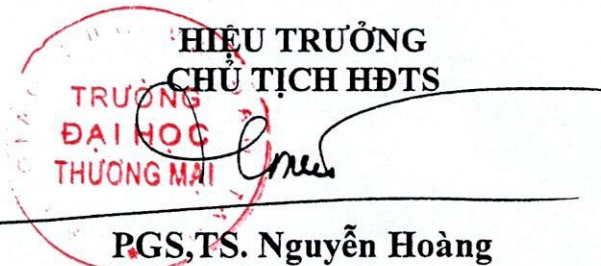 HIỆU TRƯỞNG
CHỦ TỊCH HĐTS
TRƯỜNG
ĐẠI HỌC
THƯƠNG MẠI
PGS,TS. Nguyễn Hoàng